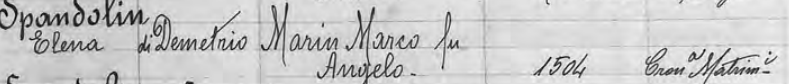 Spandolin
Elena di Demetrio Marin Marco fu
Angelo. 1504 Cronª Matrimⁱ